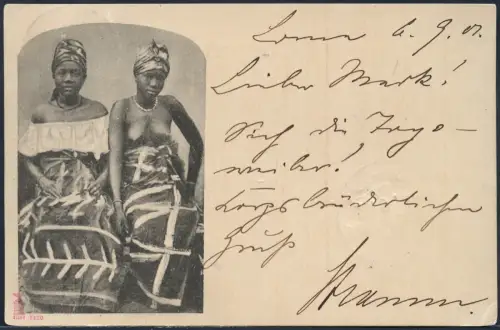 Lome 6.9.01.
Lieber Mark!
Sieh die Togo-
weiber!
Corpsbrüderlichen
Gruß